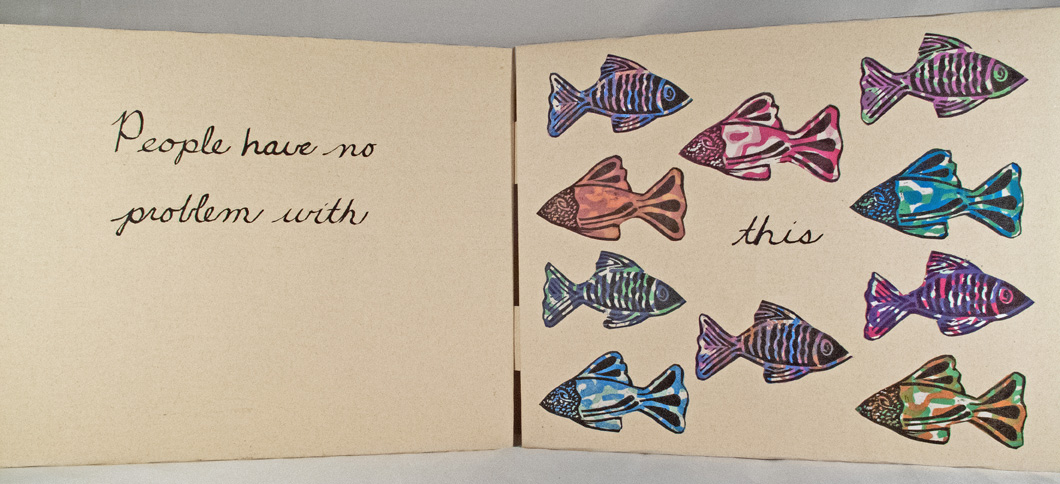 People have no
problem with
this